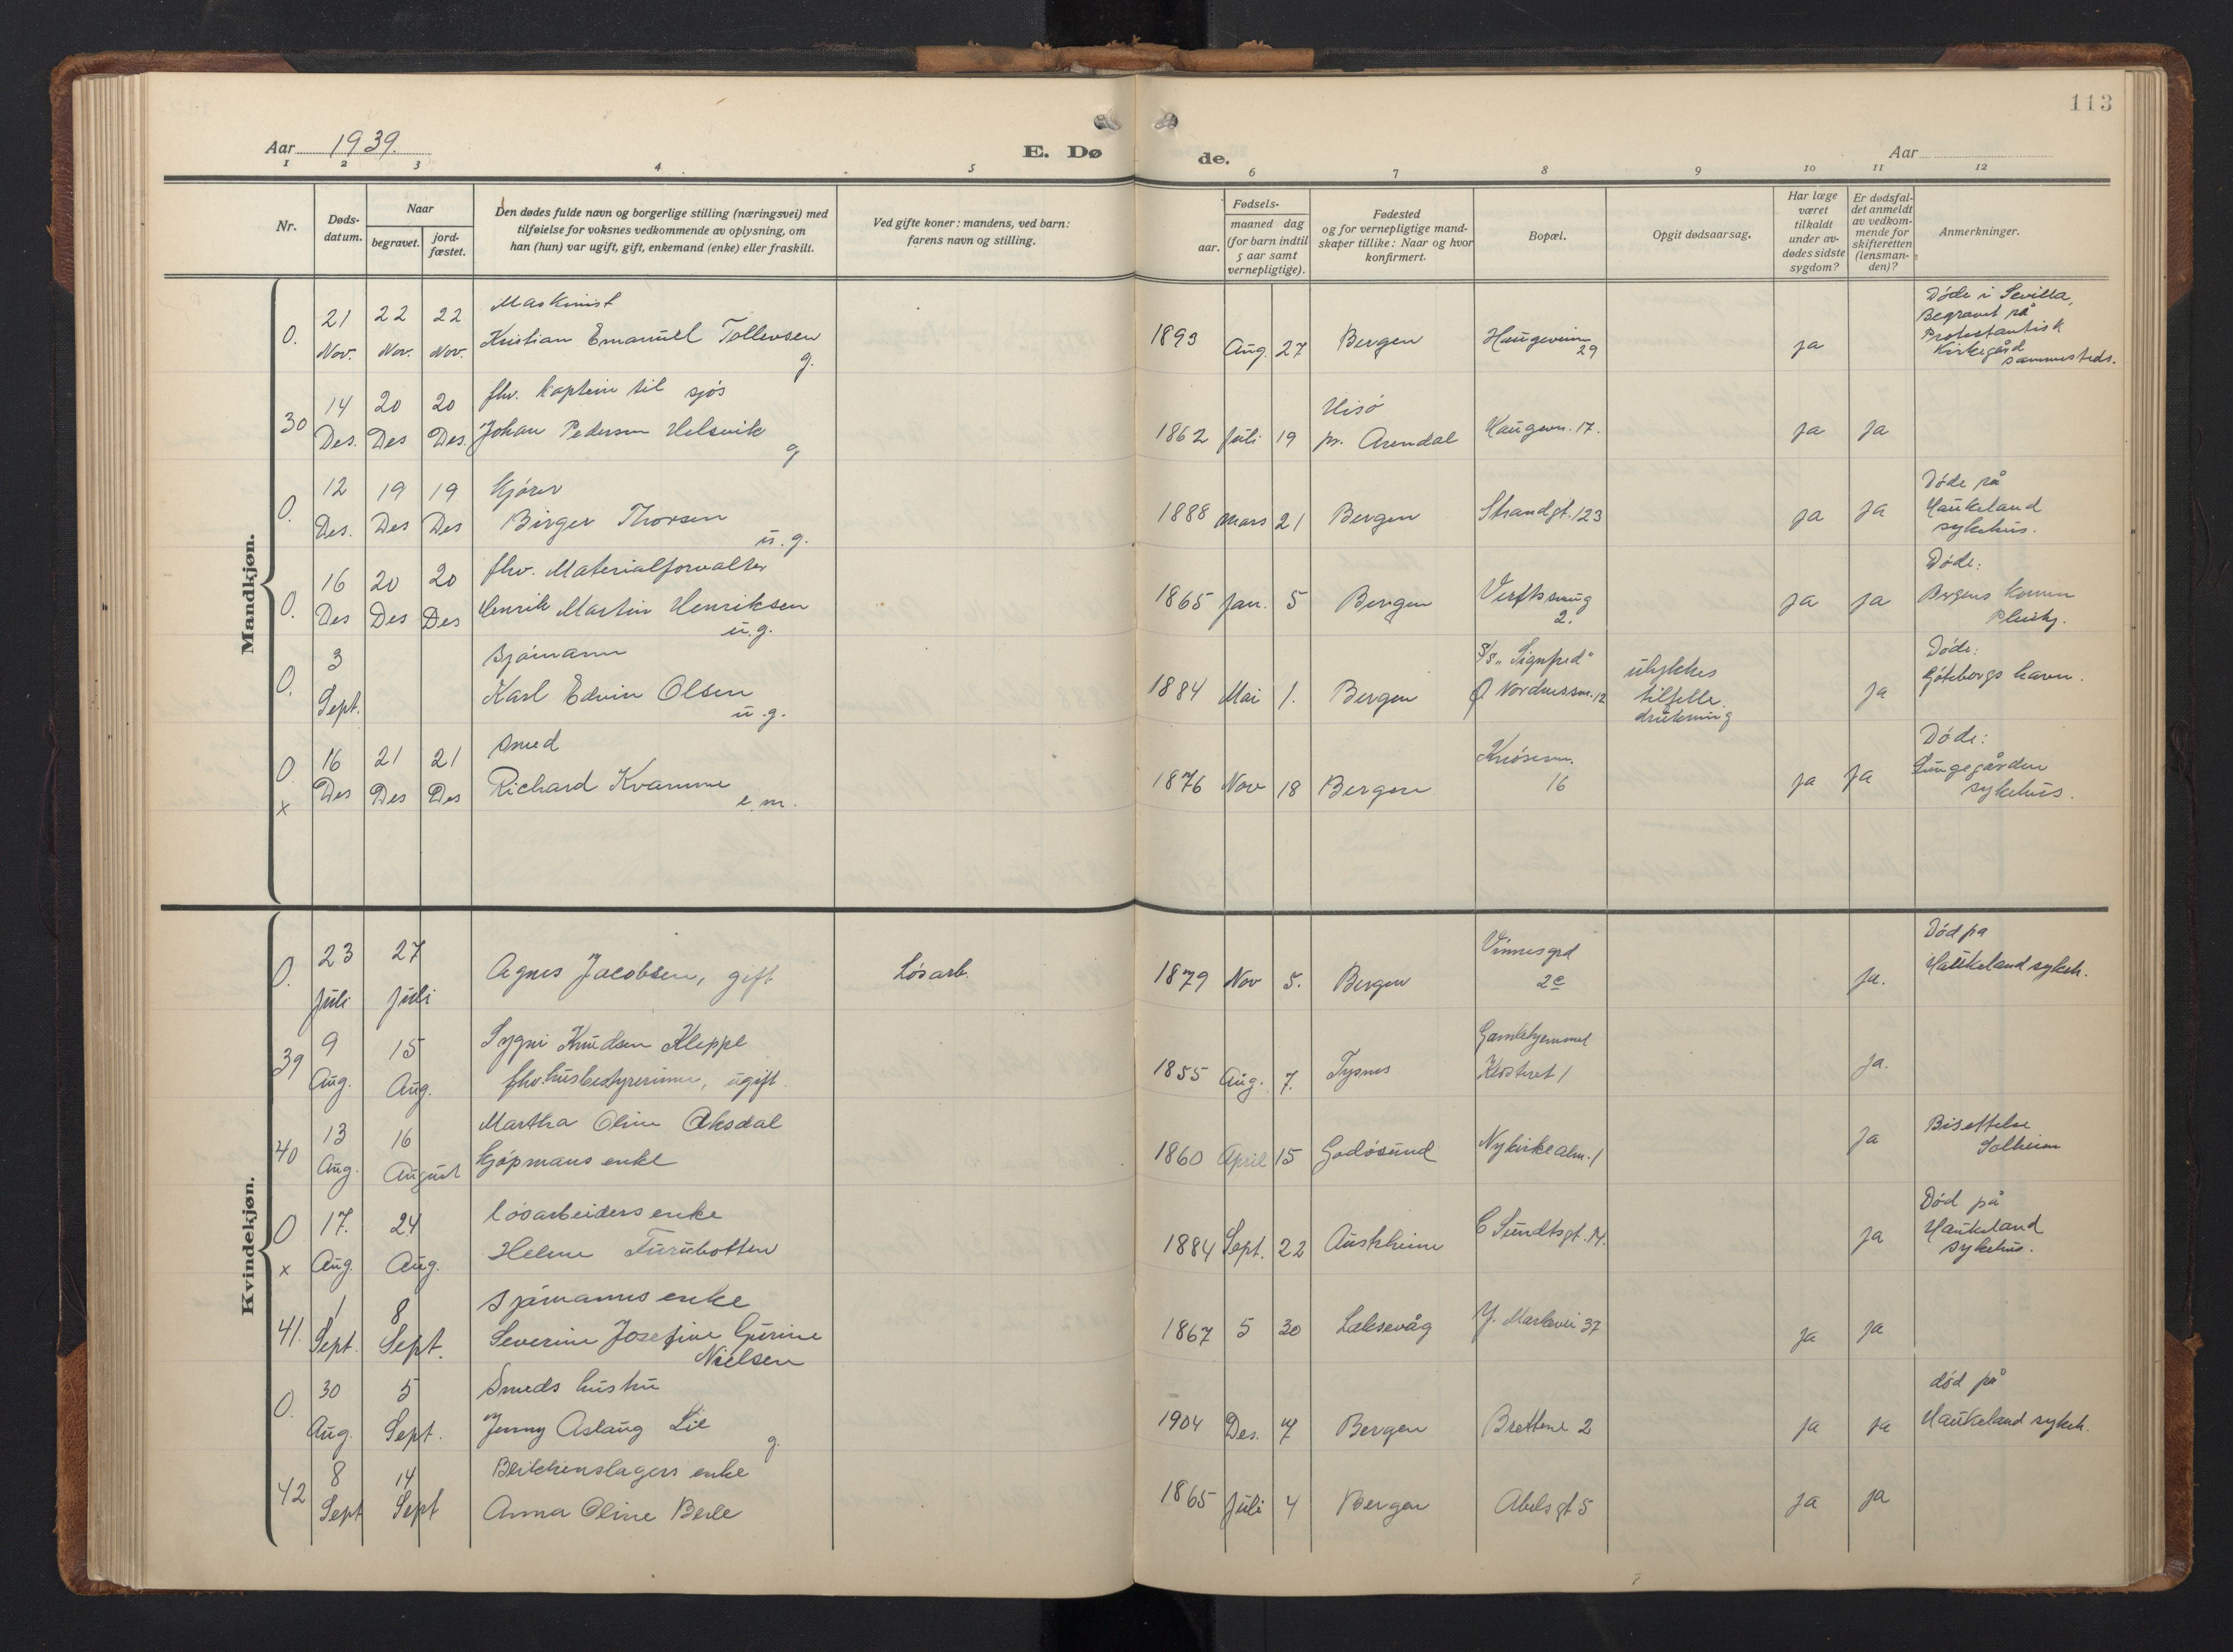 113
Aar 1939.
E. Dø
de.
Aar
1 2 3 4 5 6 7 8 9 10 11 12
Nr.
Døds-
datum.
Naar
begravet.
jord-
fæstet.
Den dødes fulde navn og borgerlige stilling (næringsvei) med
tilføielse for voksnes vedkommende av oplysning, om
han (hun) var ugift, gift, enkemand (enke) eller fraskilt.
Ved gifte koner: mandens, ved barn:
farens navn og stilling.
Fødsels-
aar.
maaned dag
(for barn indtil
5 aar samt
vernepligtige).
Fødested
og for vernepligtige mand-
skaper tillike: Naar og hvor
konfirmert.
Bopæl.
Opgit dødsaarsag.
Har læge
været
tilkaldt
under av-
dødes sidste
sygdom?
Er dødsfal-
det anmeldt
av vedkom-
mende for
skifteretten
(lensman-
den)?
Anmerkninger.
Mandkjøn.
0. 21 Nov. 22 Nov. 22 Nov.
Maskinist
Kristian Emanuel Tollevsen
g.
1893 Aug. 27 Bergen
Haugeveien
29
ja
Døde i Sevilla,
Begravet på
Protestantisk
Kirkegård
sammesteds.
30 14 Des. 20 Des 20 Des.
fhv. Kaptein til sjøs
Johan Pedersen Helsvik
g
1862 Juli 19
Hisø
pr. Arendal
Haugevn. 17.
ja ja
0. 12 Des. 19 Des 19 Des
Kjører
Birger Thorsen
u.g.
1888 Mars 21 Bergen
Strandgt. 123
ja ja
Døde på
Haukeland
sykehus.
0. 16 Des 20 Des 20 Des
fhv. Materialforvalter
Henrik Martin Henriksen
u.g.
1865 Jan. 5 Bergen
Verftssmug
2.
ja ja
Døde:
Bergens komm
Pleiehj.
0. 3 Sept.
Sjømann
Karl Edvin Olsen
u.g.
1884 Mai 1. Bergen
S/S "Signfred"
Nordnessm. 12
ulykkes
tilfelle.
drukning
ja
Døde:
Göteborgs havn.
0 x 16 Des 21 Des 21 Des
Smed
Richard Kvamme
e.m.
1876 Nov 18 Bergen
Knøsesm.
16
ja ja
Døde:
Lungegården
sykehus.
Kvindekjøn.
0. 23 Juli 27 Juli
Agnes Jacobsen, gift
Løsarb.
1879 Nov 5. Bergen
Vinnesgrd
2c
ja.
Død på
Haukeland sykeh.
39 9 Aug. 15 Aug.
Sygni Knudsen Kleppe
fhv. husbestyrerinne, ugift.
1855 Aug. 7. Tysnes
Gamlehjemmet
Klosteret 1
ja.
40 13 Aug. 16 August
Martha Oline Aksdal
Kjøpmans enke
1860 April 15 Godøsund
Nykirkealm. 1
ja
Bisettelse
Solheim
0 x 17. Aug. 24 Aug.
Løsarbeiders enke
Helene Furubotten
1884 Sept. 22 Austrheim
C Sundtsgt. 14.
ja
Død på
Haukeland
sykehus.
41. 1 Sept. 8 Sept.
Sjømanns enke
Severine Josefine Gurine
Nielsen
1867 5 30 Laksevåg
Y. Markevei 37
ja ja
0. 30 Aug. 5 Sept.
Smeds hustru
Jenny Aslaug Lie
g.
1904 Des. 7 Bergen
Brettene 2
ja ja
død på
Haukeland sykeh.
42 8 Sept 14 Sept
Blikkenslagers enke
Anna Oline Berle
1865 Juli 4 Bergen
Abelsgt 5
ja ja